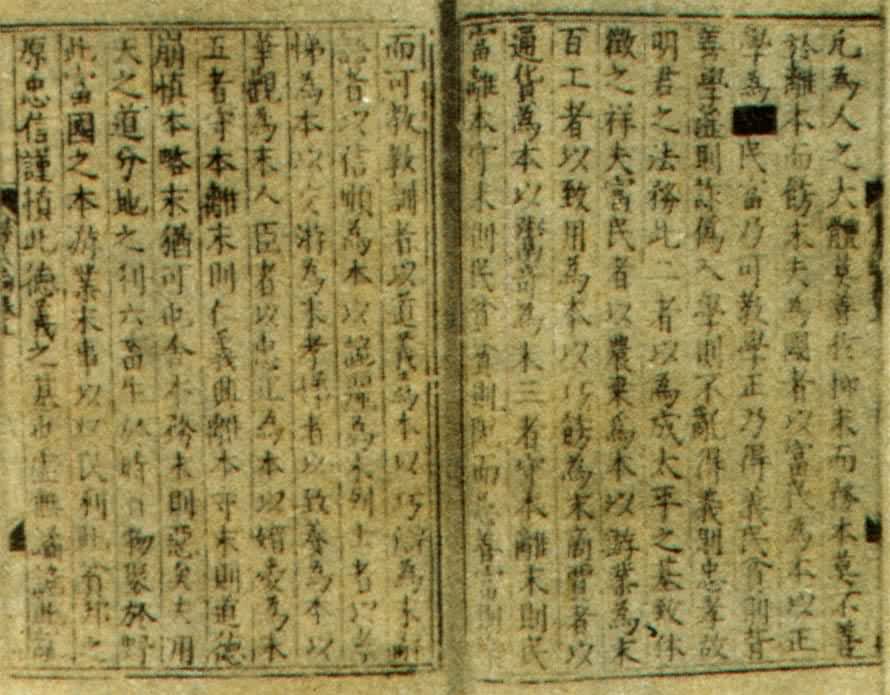 凡為人之大體莫善於抑末而務本莫不善
於離本而飾末夫為國者以富民為本以正
學為民富乃可教學正乃得義民貧則背
善學淫則詐偽入學則不亂得義則忠孝故
明君之法務此二者以為成太平之基致休
徵之祥夫富民者以農桑為本以游業為末
百工者以致用為本以巧飾為末商賈者以
通貨為本以鬻奇為末三者守本離末則民
富離本守末則民貧貧則而忘善富則樂
而可教教訓者以道義為本以巧辯為末辭
語者以信順為本以詭麗為末列士者以孝
悌為本以交游為末孝悌者以致養為本以
華觀為末人臣者以忠正為本以媚愛為末
五者守本離末則仁義興離本守末則道德
崩慎本略末猶可也舍本務末則惡矣夫用
天之道分地之利六畜生於時百物聚於野
此富國之本游業末事以收民利此貧邦之
原忠信謹慎此德義之基也虛無譎詭此